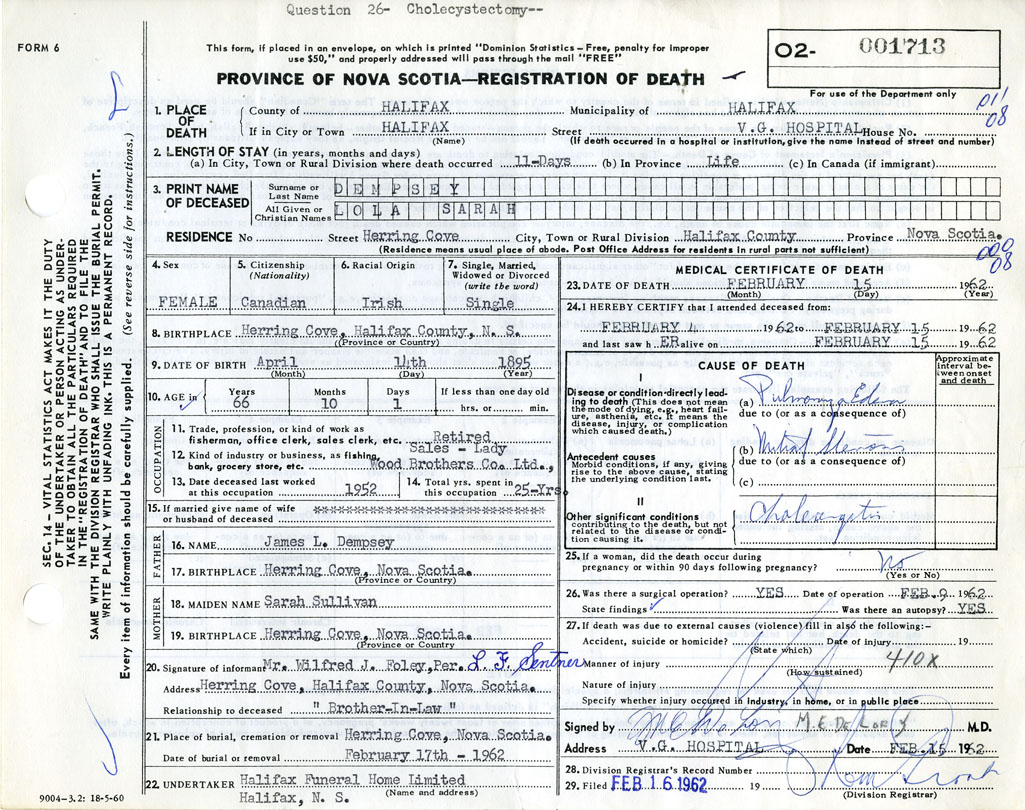 Question 26- Cholecystectomy--
FORM 6
This form, if placed in an envelope, on which is printed "Dominion Statistics - Free, penalty for improper
use $50," and properly addressed will pass through the mail "FREE"
PROVINCE OF NOVA SCOTIA—REGISTRATION OF DEATH
02- 001713
For use of the Department only
011
08
SEC. 14 - VITAL STATISTICS ACT MAKES IT THE DUTY
OF THE UNDERTAKER OR PERSON ACTING AS UNDER-
TAKER TO OBTAIN ALL THE PARTICULARS REQUIRED
IN THE "REGISTRATION OF DEATH" AND TO FILE THE
SAME WITH THE DIVISION REGISTRAR WHO SHALL ISSUE THE BURIAL PERMIT.
WRITE PLAINLY WITH UNFADING INK. THIS IS A PERMANENT RECORD.
Every item of information should be carefully supplied. (See reverse side for instructions.)
1. PLACE OF DEATH
County of HALIFAX Municipality of HALIFAX
If in City or Town HALIFAX Street V.G. HOSPITAL House No.
(Name) (If death occurred in a hospital or institution, give the name instead of street and number)
2. LENGTH OF STAY (in years, months and days)
(a) In City, Town or Rural Division where death occurred 11-Days (b) In Province Life (c) In Canada (if immigrant)
3. PRINT NAME OF DECEASED
Surname or Last Name DEMPSEY
All Given or Christian Names LOLA SARAH
RESIDENCE No Street Herring Cove City, Town or Rural Division Halifax County Province Nova Scotia.
(Residence means usual place of abode. Post Office Address for residents in rural parts not sufficient)
000
08
4. Sex 5. Citizenship (Nationality) 6. Racial Origin 7. Single, Married, Widowed or Divorced (write the word)
FEMALE Canadian Irish Single
8. BIRTHPLACE Herring Cove, Halifax County, N. S.
(Province or Country)
9. DATE OF BIRTH April 14th 1895
(Month) (Day) (Year)
10. AGE in Years Months Days If less than one day old
66 10 1 hrs. or min.
OCCUPATION
11. Trade, profession, or kind of work as
fisherman, office clerk, sales clerk, etc. Retired
Sales - Lady
12. Kind of industry or business, as fishing,
bank, grocery store, etc. Wood Brothers Co. Ltd.,
13. Date deceased last worked at this occupation 1952
14. Total yrs. spent in this occupation 25-Yrs.
15. If married give name of wife
or husband of deceased ****************************
FATHER
16. NAME James L. Dempsey
17. BIRTHPLACE Herring Cove, Nova Scotia.
(Province or Country)
MOTHER
18. MAIDEN NAME Sarah Sullivan
19. BIRTHPLACE Herring Cove, Nova Scotia.
(Province or Country)
20. Signature of informant Mr. Wilfred J. Foley, Per. L F. Sentner
Address Herring Cove, Halifax County, Nova Scotia.
Relationship to deceased " Brother-In-Law "
21. Place of burial, cremation or removal Herring Cove, Nova Scotia.
Date of burial or removal February 17th - 1962
22. UNDERTAKER Halifax Funeral Home Limited
(Name and address)
Halifax, N. S.
9004-3.2: 18-5-60
MEDICAL CERTIFICATE OF DEATH
23. DATE OF DEATH FEBRUARY 15 1962
(Month) (Day) (Year)
24. I HEREBY CERTIFY that I attended deceased from:
FEBRUARY 4 1962 to FEBRUARY 15 1962
and last saw h ER alive on FEBRUARY 15 1962
CAUSE OF DEATH
Approximate interval between onset and death
I
Disease or condition directly leading to death (This does not mean the mode of dying, e.g., heart failure, asthenia, etc. It means the disease, injury, or complication which caused death.)
(a) Pulmonary Edema
due to (or as a consequence of)
Antecedent causes
Morbid conditions, if any, giving rise to the above cause, stating the underlying condition last.
(b) Mitral Stenosis
due to (or as a consequence of)
(c)
II
Other significant conditions
contributing to the death, but not related to the disease or condition causing it.
Cholangitis
25. If a woman, did the death occur during
pregnancy or within 90 days following pregnancy? No
(Yes or No)
26. Was there a surgical operation? YES Date of operation FEB. 9 1962
State findings Was there an autopsy? YES
27. If death was due to external causes (violence) fill in also the following:-
Accident, suicide or homicide? Date of injury 19
(State which)
Manner of injury
(How sustained)
410X
Nature of injury
Specify whether injury occurred in Industry, in home, or in public place
Signed by M.E. DeLory M.D.
Address V.G. HOSPITAL Date FEB. 15 1962
28. Division Registrar's Record Number
29. Filed FEB 16 1962 19
(Division Registrar)